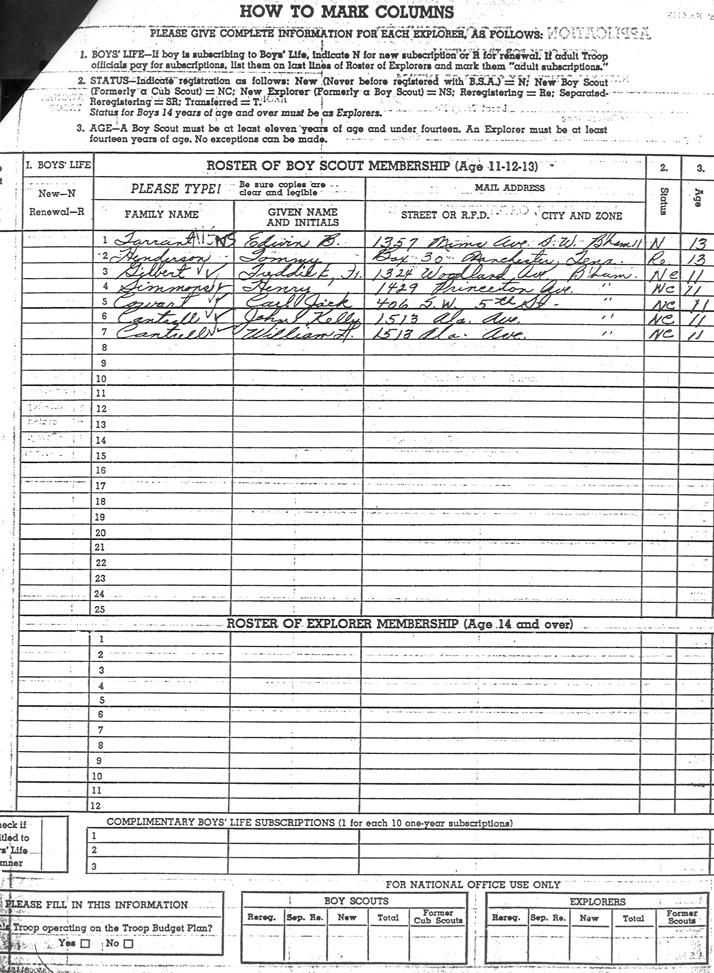 HOW TO MARK COLUMNS
PLEASE GIVE COMPLETE INFORMATION FOR EACH EXPLORER, AS FOLLOWS:
1. BOYS' LIFE—If boy is subscribing to Boys' Life, indicate N for new subscription or R for renewal. If adult Troop
officials pay for subscriptions, list them on last lines of Roster of Explorers and mark them "adult subscriptions."
2. STATUS—Indicate registration as follows: New (Never before registered with B.S.A.) = N; New Boy Scout
(Formerly a Cub Scout) = NC; New Explorer (Formerly a Boy Scout) = NS; Reregistering = Re; Separated-
Reregistering = SR; Transferred = T.
Status for Boys 14 years of age and over must be as Explorers.
3. AGE—A Boy Scout must be at least eleven years of age and under fourteen. An Explorer must be at least
fourteen years of age. No exceptions can be made.
1. BOYS' LIFE ROSTER OF BOY SCOUT MEMBERSHIP (Age 11-12-13) 2. 3.
New—N PLEASE TYPE! Be sure copies are clear and legible MAIL ADDRESS Status Age
Renewal—R FAMILY NAME GIVEN NAME AND INITIALS STREET OR R.F.D. CITY AND ZONE
1 Tarrant Edwin B. 1357 Mims Ave. S.W. B'ham 11 N 13
2 Henderson Tommy Box 30 Manchester, Tenn. Re. 13
3 Gilbert Jr. 1324 Woodland Ave. B'ham. Nc 11
4 Simmons Henry 1429 Princeton Ave. " NC 11
5 Cowart Carl Jack 406 S.W. 5th St. " NC 11
6 Cantrell John Kelly 1513 Ala. Ave. " NC 11
7 Cantrell William H. 1513 Ala. Ave. " NC 11
8
9
10
11
12
13
14
15
16
17
18
19
20
21
22
23
24
25
ROSTER OF EXPLORER MEMBERSHIP (Age 14 and over)
1
2
3
4
5
6
7
8
9
10
11
12
COMPLIMENTARY BOYS' LIFE SUBSCRIPTIONS (1 for each 10 one-year subscriptions)
1
2
3
FOR NATIONAL OFFICE USE ONLY
PLEASE FILL IN THIS INFORMATION
Troop operating on the Troop Budget Plan?
Yes ☐ No ☐
BOY SCOUTS
Rereg. Sep. Re. New Total Former Cub Scouts
EXPLORERS
Rereg. Sep. Re. New Total Former Scouts